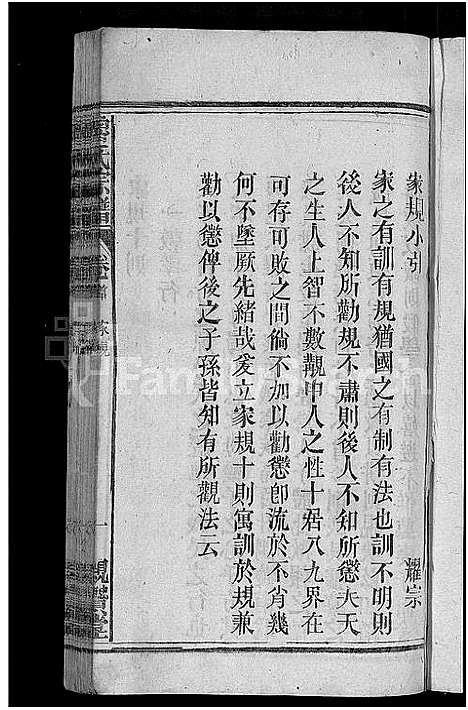 家規小引 耀宗
家之有訓有規猶國之有制有法也訓不明則
後人不知所勸規不肅則後人不知所懲夫天
之生人上智不數覯中人之性十居八九界在
可存可敗之間倘不加以勸懲卽流於不肖幾
何不墜厥先緒哉爰立家規十則寓訓於規兼
勸以懲俾後之子孫皆知有所觀法云
家規
一